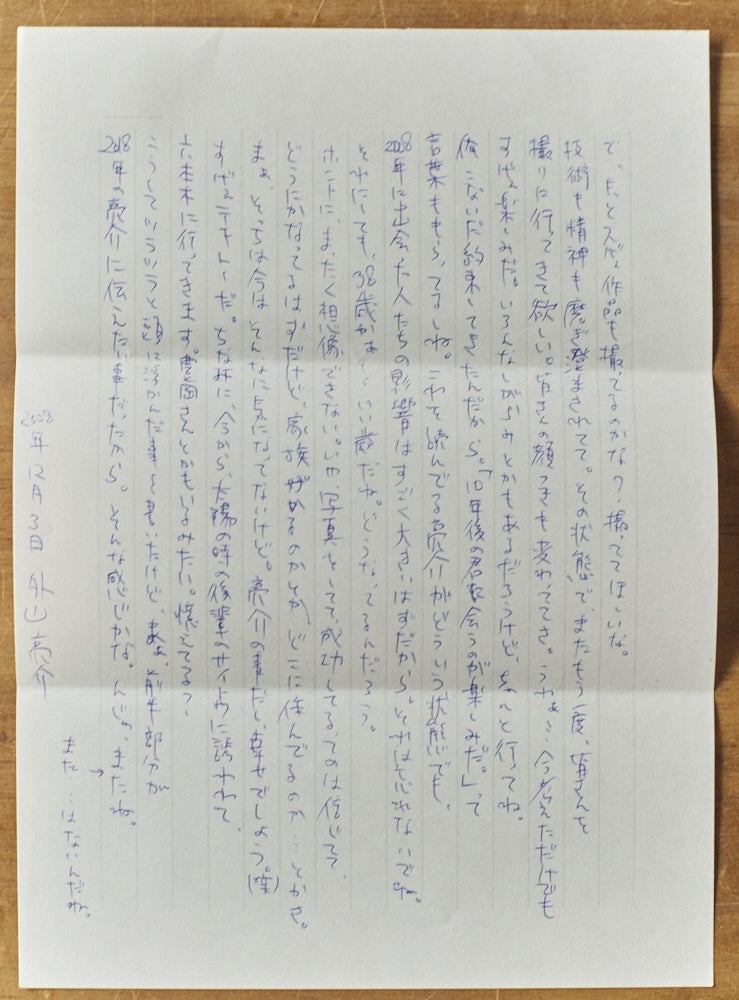 で、もっとスゲェ作品を撮ってるのかな？撮っててほしいな。
技術も精神も磨ぎ澄まされてて。その状態で、またもう一度、皆さんを
撮りに行ってきて欲しい。皆さんの顔つきも変わっててさ。うわぁ…今考えただけでも
すげぇ楽しみだ。いろんなしがらみとかもあるだろうけど、ちゃんと行ってね。
俺、こないだ約束してきたんだから。「10年後の君に会うのが楽しみだ。」って
言葉ももらってるしね。これを読んでる亮介がどういう状態でも、
2008年に出会った人たちの影響はすごく大きいはずだから。それは忘れないでね。
それにしても、38歳かぁ…いい歳だね。どうなってるんだろう。
ホントに、まったく想像できない。いや、写真をしてて、成功してるってのは信じてて、
どうにかなってるはずだけど、家族がいるのかとか、どこに住んでるのか…とかさ。
まぁ、そっちは今はそんなに気になってないけど。亮介の事だし、幸せでしょう。(笑)
すげぇテキトーだ。ちなみに、今から、太陽の時の後輩のサイトウに誘われて、
六本木に行ってきます。豊岡さんとかもいるみたい。憶えてる？
こうしてツラツラと頭に浮かんだ事を書いたけど、まぁ、前半部分が
2018年の亮介に伝えたい事だったから。そんな感じかな。んじゃ、またね。
また…はないんだね。
2008年12月3日 外山亮介